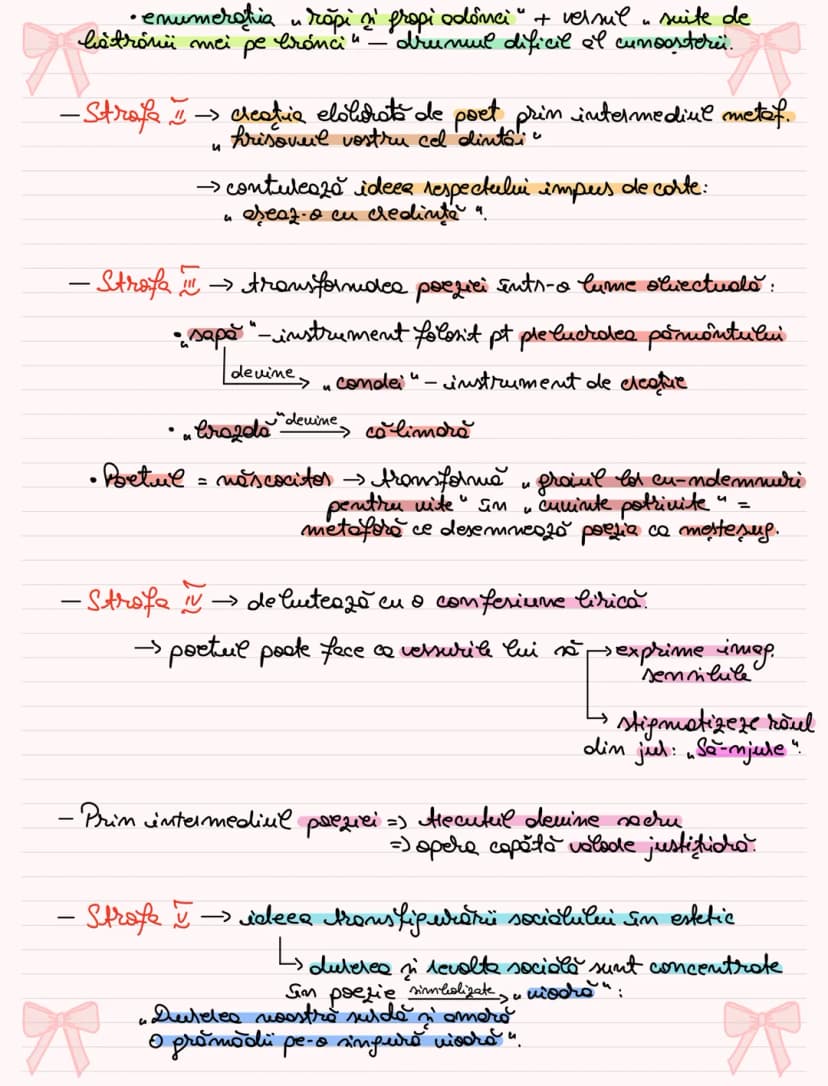 • enumerația „ râpi și gropi adânci “ + versul „ suite de
bătrânii mei pe brânci “ — drumul dificil al cunoașterii.
— Strofa II → creația elaborată de poet prin intermediul metaf.
„ hrisovul vostru cel dintâi “
→ conturează ideea respectului impus de carte:
„ așeaz-o cu credință “.
— Strofa III → transformarea poeziei într-o lume obiectuală:
• „sapă “ - instrument folosit pt prelucrarea pământului
devine → „ condei “ - instrument de creație
• „ brazda “ devine → călimară
• Poetul = născocitor → transformă „ graiul lor cu-ndemnuri
pentru vite “ în „ cuvinte potrivite “ =
metaforă ce desemnează poezia ca meșteșug.
— Strofa IV → debutează cu o confesiune lirică.
→ poetul poate face ca versurile lui să → exprime imag.
sensibile
→ stigmatizeze răul
din jur: „Să-njure “.
— Prin intermediul poeziei => trecutul devine sacru
=> opera capătă valoare justițiară.
— Strofa V → ideea transfigurării socialului în estetic
↳ durerea și revolta socială sunt concentrate
în poezie simbolizate → „ vioară “ :
„ Durerea noastră surdă și amară
O grămădii pe-o singură vioară “.